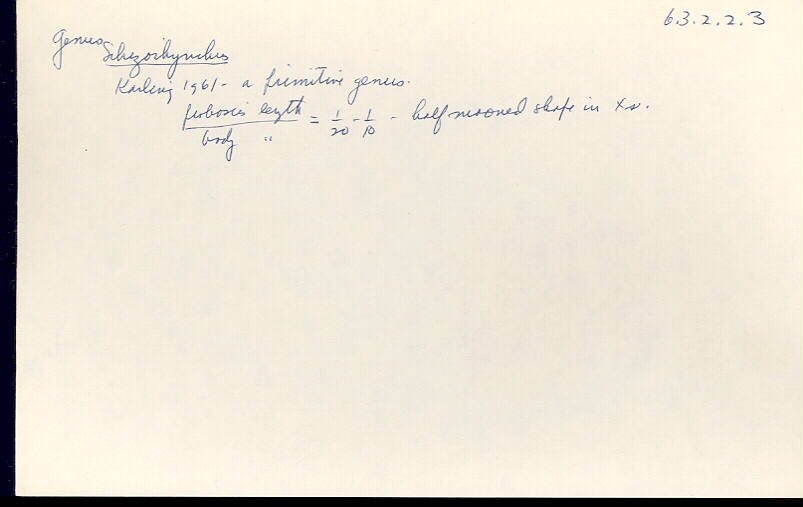 6.3.2.2.3
Genus Schizorhynchus
Karling 1961 - a primitive genus.
proboscis length / body " = 1/20 - 1/10 - half mooned shape in Xs.